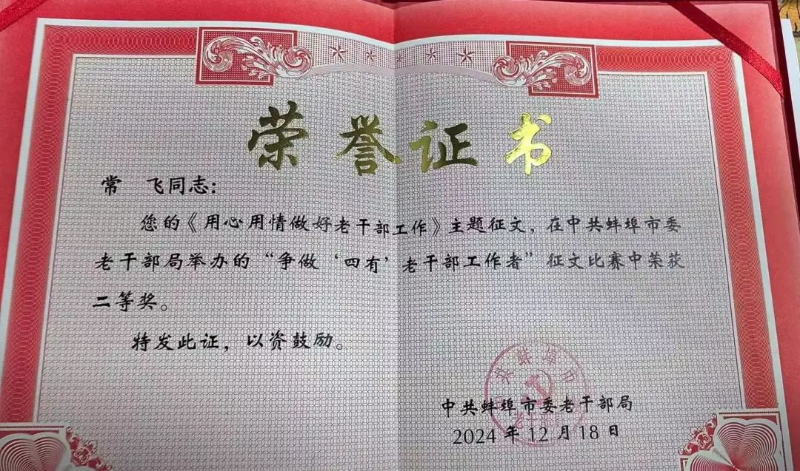 荣誉证书
常 飞同志：
您的《用心用情做好老干部工作》主题征文，在中共蚌埠市委
老干部局举办的“争做‘四有’老干部工作者”征文比赛中荣获
二等奖。
特发此证，以资鼓励。
中共蚌埠市委老干部局
2024 年 12 月 18 日